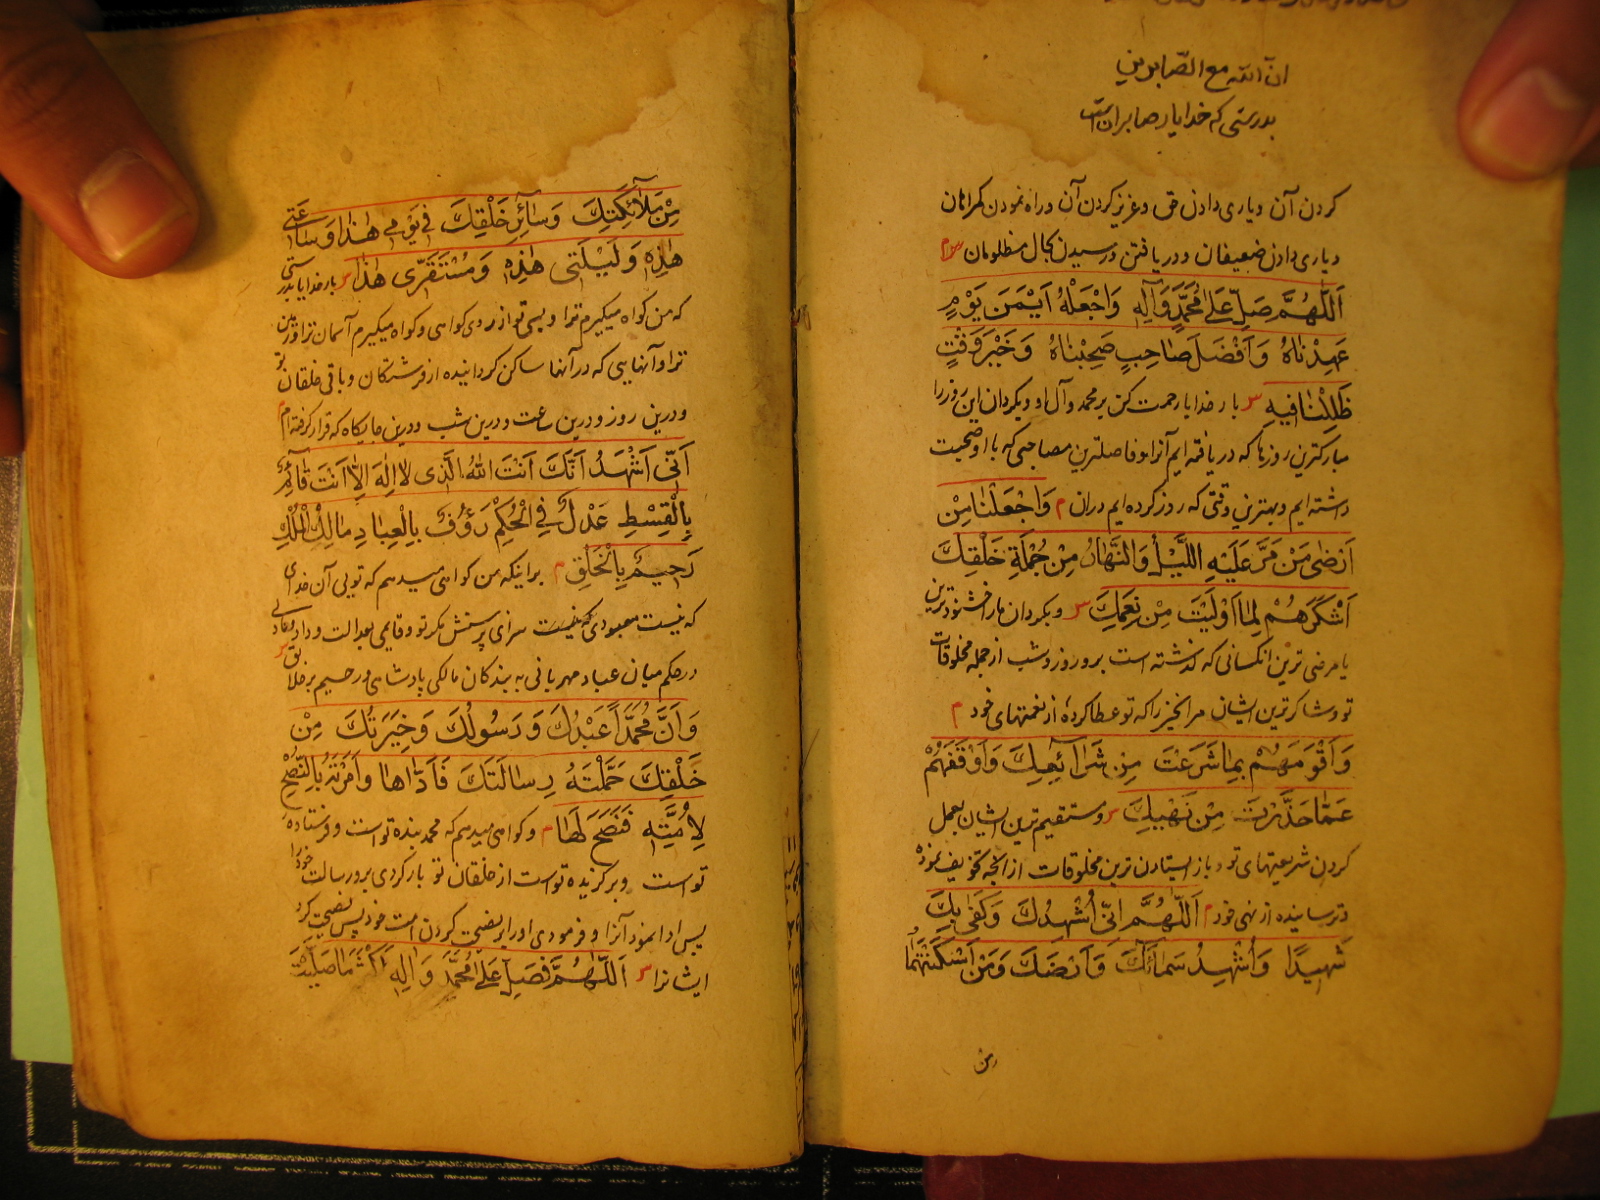 ان الله مع الصابرين
بدرستی که خدا یار صابران است
کردن آن و یاری دادن حق و عزیز کردن آن و راه نمودن گمراهان
و یاری دادن ضعیفان و دریافتن و رسیدن بحال مظلومان
اَللّٰهُمَّ صَلِّ عَلىٰ مُحَمَّدٍ وَاٰلِهِ وَاجْعَلْهُ اَيْمَنَ يَوْمٍ
عَهِدْنَاهُ وَاَفْضَلَ صَاحِبٍ صَحِبْنَاهُ وَخَيْرَ وَقْتٍ
ظَلِلْنَا فِيهِ بار خدایا رحمت کن بر محمد و آل او و بگردان این روز را
مبارکترین روزها که دریافته ایم آنرا و فاضلترین مصاحبی که با او صحبت
داشته ایم و بهترین وقتی که روز کرده ایم دران م وَاجْعَلْنَا مِنْ
اَرْضىٰ مَنْ مَرَّ عَلَيْهِ اللَّيْلُ وَالنَّهَارُ مِنْ جُمْلَةِ خَلْقِكَ
اَشْكَرَهُمْ لِمَا اَوْلَيْتَ مِنْ نِعَمِكَ و بگردان ما را خشنودترین
یا مرضی ترین انکسانی که گذشته است برو روز و شب از جمله مخلوقات
تو و شاکرترین ایشان مر آنچیز را که تو عطا کردهٔ از نعمتهای خود م
وَاَقْوَمَهُمْ بِمَا شَرَعْتَ مِنْ شَرَائِعِكَ وَاَوْقَفَهُمْ
عَمَّا حَذَّرْتَ مِنْ نَهْيِكَ و مستقیم ترین ایشان بعمل
کردن شریعتهای تو و باز ایستادن ترین مخلوقات از آنچه تخویف نموده
و ترسانیده از نهی خود م اَللّٰهُمَّ اِنّىٓ اُشْهِدُكَ وَكَفىٰ بِكَ
شَهِيدًا وَاُشْهِدُ سَمَاءَكَ وَاَرْضَكَ وَمَنْ اَسْكَنْتَهُمَا
من
مِنْ مَلَآئِكَتِكَ وَسَآئِرِ خَلْقِكَ فِي يَوْمِي هٰذَا وَسَاعَتِي
هٰذِهِ وَلَيْلَتِي هٰذِهِ وَمُسْتَقَرِّي هٰذَا بار خدایا بدرستی
که من گواه میگیرم ترا و بسی تو از روی گواهی و گواه میگیرم آسمان ترا و زمین
ترا و آنهایی که در آنها ساکن گردانیده از فرشتگان و باقی خلقان تو
و درین روز و درین ساعت و درین شب و درین جایگاه که قرار گرفته ام م
اَنّىٓ اَشْهَدُ اَنَّكَ اَنْتَ اللهُ الَّذى لَا اِلٰهَ اِلَّا اَنْتَ قَائِمٌ
بِالْقِسْطِ عَدْلٌ فِي الْحُكْمِ رَؤُفٌ بِالْعِبَادِ مَالِكُ الْمُلْكِ
رَحِيمٌ بِالْخَلْقِ م براینکه من گواهی میدهم که تویی آن خدای
که نیست معبودی که نیست سزای پرستش مگر تو و قایمی بعدالت و داد و عادلی
در حکم میان عباد مهربانی به بندگان مالکی پادشاهی و رحیم بر خلایق
وَاَنَّ مُحَمَّدًا عَبْدُكَ وَرَسُولُكَ وَخِيَرَتُكَ مِنْ
خَلْقِكَ حَمَّلْتَهُ رِسَالَتَكَ فَاَدَّاهَا وَاَمَرْتَهُ بِالنُّصْحِ
لِاُمَّتِهِ فَنَصَحَ لَهَا م و گواهی میدهم که محمد بنده تو است و فرستاده
تو است و برگزیده تو است از خلقان تو بار کردی برو رسالت خود را
پس ادا نمود آنرا و فرمودی او را بنصیحت کردن امت خود پس نصیحت کرد
ایشانرا اَللّٰهُمَّ فَصَلِّ عَلىٰ مُحَمَّدٍ وَاٰلِهِ اَكْثَرَ مَا صَلَّيْتَ